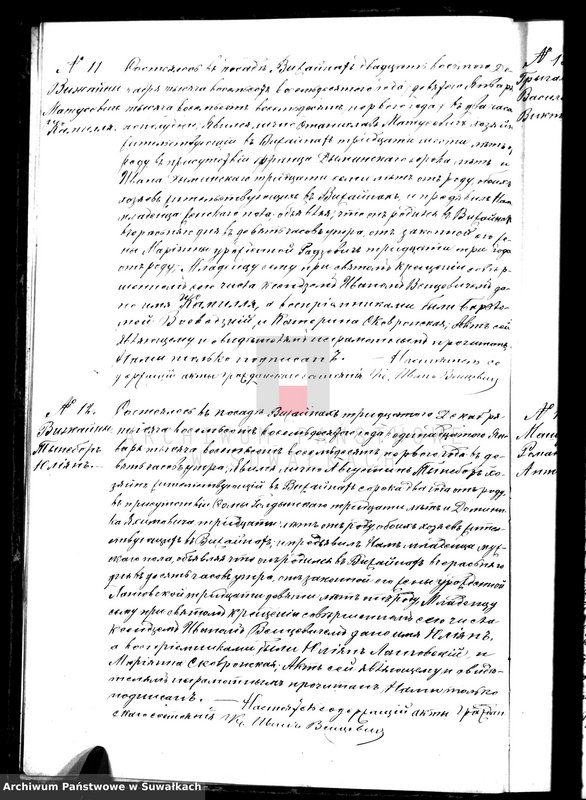 № 11
Вижайны
Матусевич
Камилля.
Состоялось въ посадѣ Вижайнахъ двадцать восьмого Де-
кабря тысяча восемьсотъ восьмидесятого года /девятого Января
тысяча восемьсотъ восемьдесятъ первого года/ въ два часа
пополудни. Явился лично Станиславъ Матусевичъ хозяинъ
жительствующій въ Вижайнахъ тридцати шести лѣтъ отъ
роду въ присутствіи Франца Дыминскаго сорока лѣтъ и
Ивана Дыминскаго тридцати семи лѣтъ отъ роду, обоихъ
хозяевъ жительствующихъ въ Вижайнахъ, и предъявилъ Намъ
младенца женскаго пола, объявляя, что онъ родился въ Вижайнахъ
вчерашняго дня въ девять часовъ утра, отъ законной его же-
ны Маріянны урожденной Радзевичъ тридцати три года
отъ роду. Младенцу сему при святомъ крещеніи совер-
шенномъ сего числа Ксендземъ Иваномъ Венцевичемъ да-
но имя Камилля, а воспріемниками были Варѳоло-
мей Воеводзкій и Катерина Сковронская. Актъ сей
объявляющему и свидѣтелямъ неграмотнымъ прочитанъ,
Нами только подписанъ. — Настоятель со
держащій акты гражданскаго состоянія Кс. Иванъ Венцевич
№ 12.
Вижайны
Юліянъ.
Состоялось въ посадѣ Вижайнахъ тридцатого Декабря
тысяча восемьсотъ восьмидесятого года /одинадцатого Ян-
варя тысяча восемьсотъ восемьдесятъ первого года/ въ де-
вять часовъ утра. Явился лично Августинъ хо-
зяинъ жительствующій въ Вижайнахъ сорока два года отъ роду,
въ присутствіи тридцати лѣтъ и Домини-
ка Яхимовича тридцати лѣтъ отъ роду, обоихъ хозяевъ житель-
ствующихъ въ Вижайнахъ, и предъявилъ Намъ младенца муж-
скаго пола, объявляя что онъ родился въ Вижайнахъ вчерашняго
дня въ десять часовъ утра, отъ законной его жены урожденной
Латовской тридцати девяти лѣтъ отъ роду. Младенцу
сему при святомъ крещеніи совершенномъ сего числа
Ксендземъ Иваномъ Венцевичемъ дано имя Юліянъ,
а воспріемниками были Юліянъ Латовскій и
Маріянна Сковронская. Актъ сей объявляющему и свидѣ-
телямъ неграмотнымъ прочитанъ, Нами только
подписанъ. — Настоятель содержащій акты Граждан
скаго состоянія Кс. Иванъ Венцевич
ARCHIWUM PAŃSTWOWE
W SUWAŁKACH
Archiwum Państwowe w Suwałkach